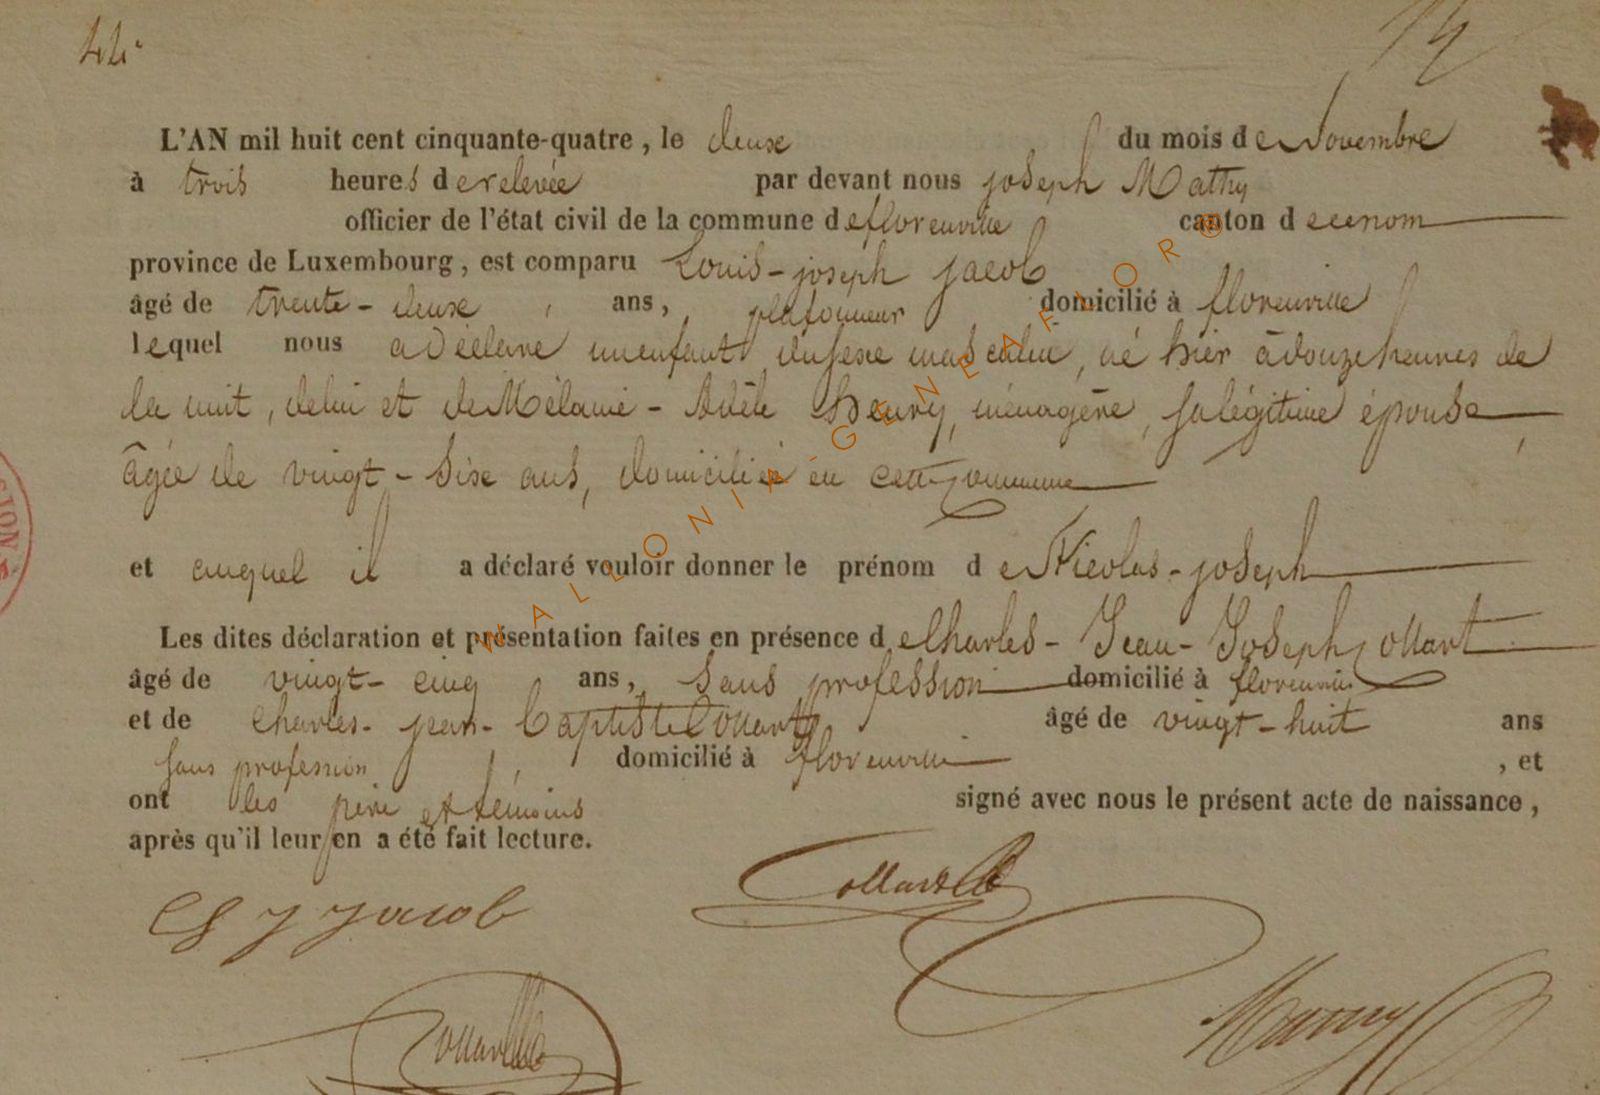 44.
L'AN mil huit cent cinquante-quatre, le deux du mois de Novembre
à trois heures de relevée par devant nous joseph Mathy
officier de l'état civil de la commune de florenville canton de ce nom
province de Luxembourg, est comparu Louis-joseph jacob
âgé de trente-deux ans, plafonneur domicilié à florenville
lequel nous a déclaré un enfant du sexe masculin, né hier à douze heures de
la nuit, de lui et de Mélanie-Adèle Henry, ménagère, sa légitime épouse
âgée de vingt-six ans, domiciliée en cette commune
et auquel il a déclaré vouloir donner le prénom de Nicolas-joseph
Les dites déclaration et présentation faites en présence de Charles-Jean-Joseph Collart
âgé de vingt-cinq ans, sans profession domicilié à florenville
et de Charles-jean-baptiste Collart âgé de vingt-huit ans
sans profession, domicilié à florenville, et
ont les père et témoins signé avec nous le présent acte de naissance,
après qu'il leur en a été fait lecture.
jacob
Collart
Collart
Mathy
WALLONIA GENEAFLOR®